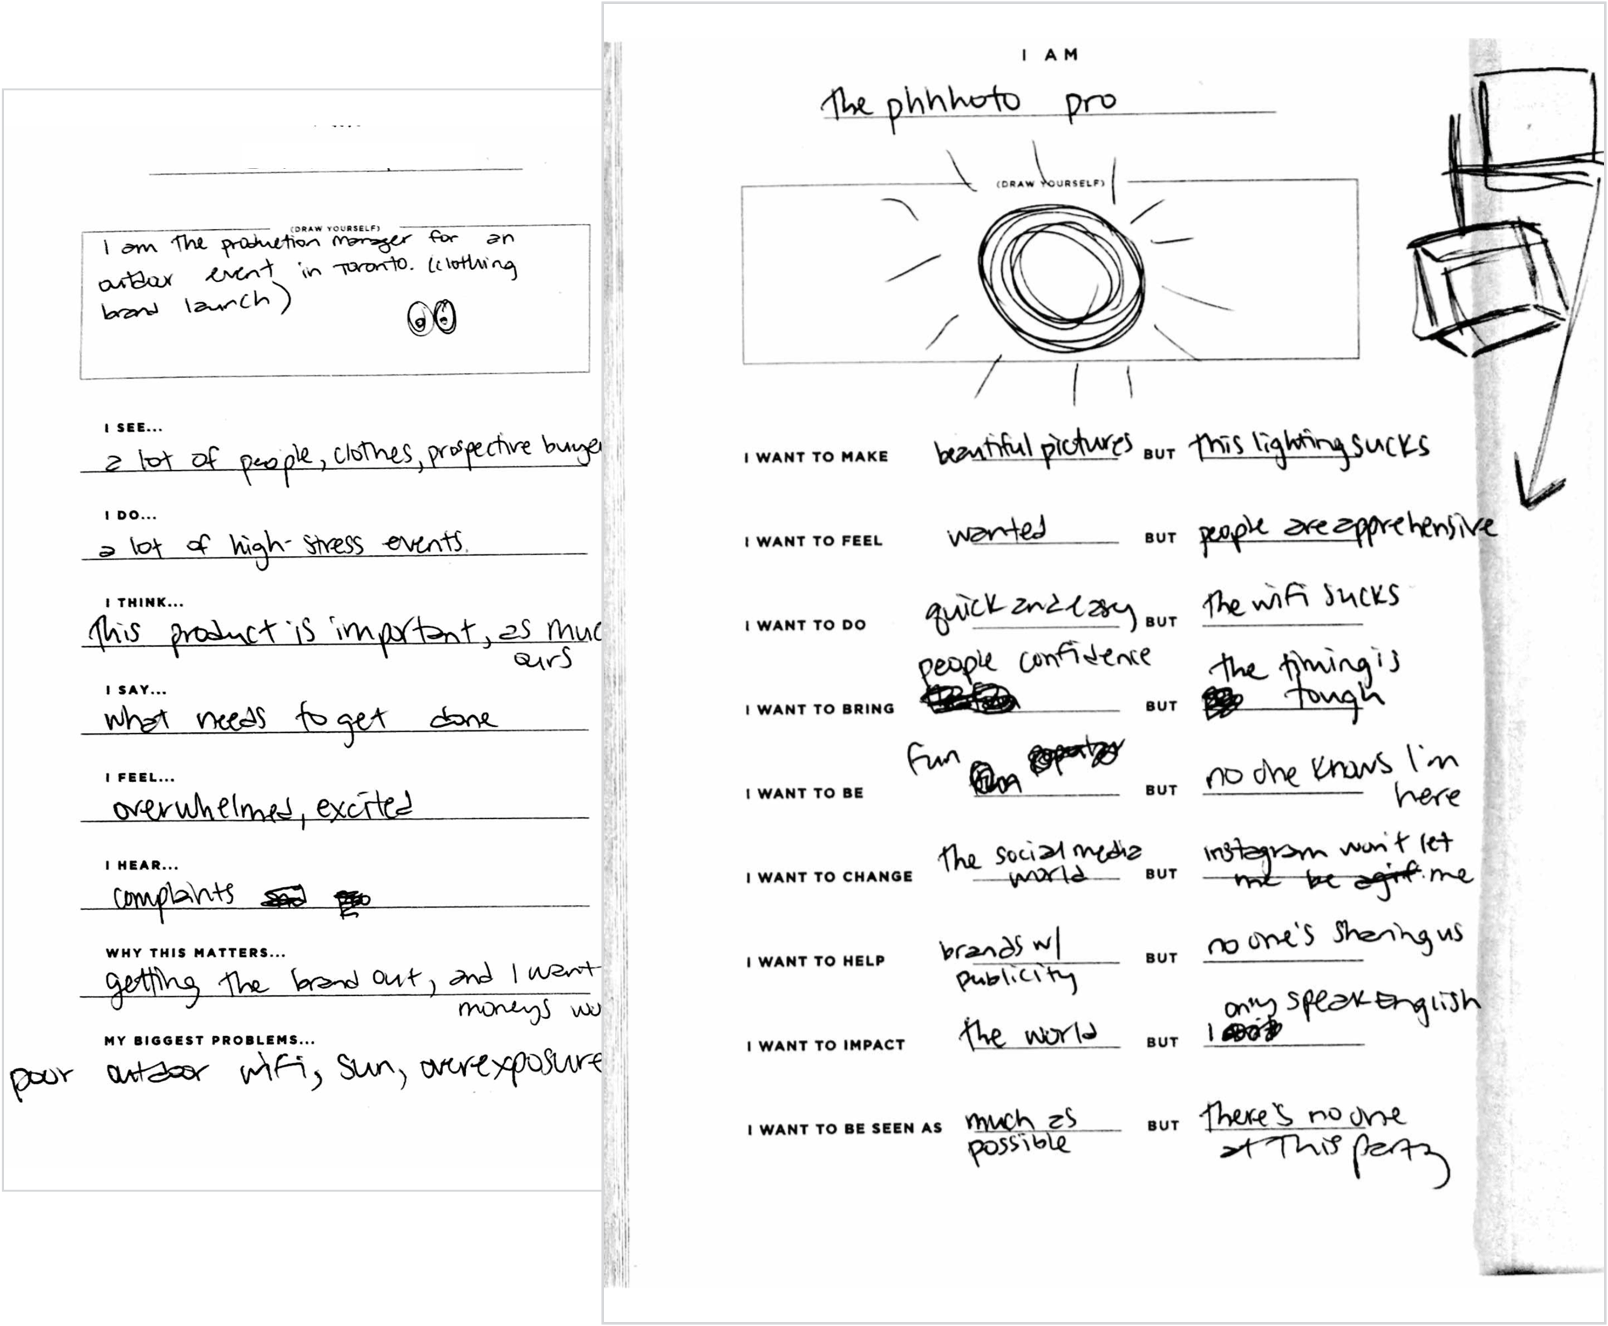 (DRAW YOURSELF)
I am the production manager for an
outdoor event in Toronto. (clothing
brand launch)
I SEE...
a lot of people, clothes, prospective buye
I DO...
a lot of high-stress events.
I THINK...
this product is important, as muc
ours
I SAY...
what needs to get done
I FEEL...
overwhelmed, excited
I HEAR...
complaints
WHY THIS MATTERS...
getting the brand out, and I want
moneys wo
MY BIGGEST PROBLEMS...
poor outdoor wifi, sun, overexposure
I AM
the phhhoto pro
(DRAW YOURSELF)
I WANT TO MAKE beautiful pictures BUT this lighting sucks
I WANT TO FEEL wanted BUT people are apprehensive
I WANT TO DO quick and easy BUT the wifi sucks
people confidence the timing is
I WANT TO BRING BUT tough
fun
I WANT TO BE BUT no one knows I'm
here
the social media instagram won't let
I WANT TO CHANGE world BUT me be a gif. me
brands w/ no one's sharing us
I WANT TO HELP BUT
publicity
only speak English
I WANT TO IMPACT the world BUT I
I WANT TO BE SEEN AS much as BUT there's no one
possible at this party